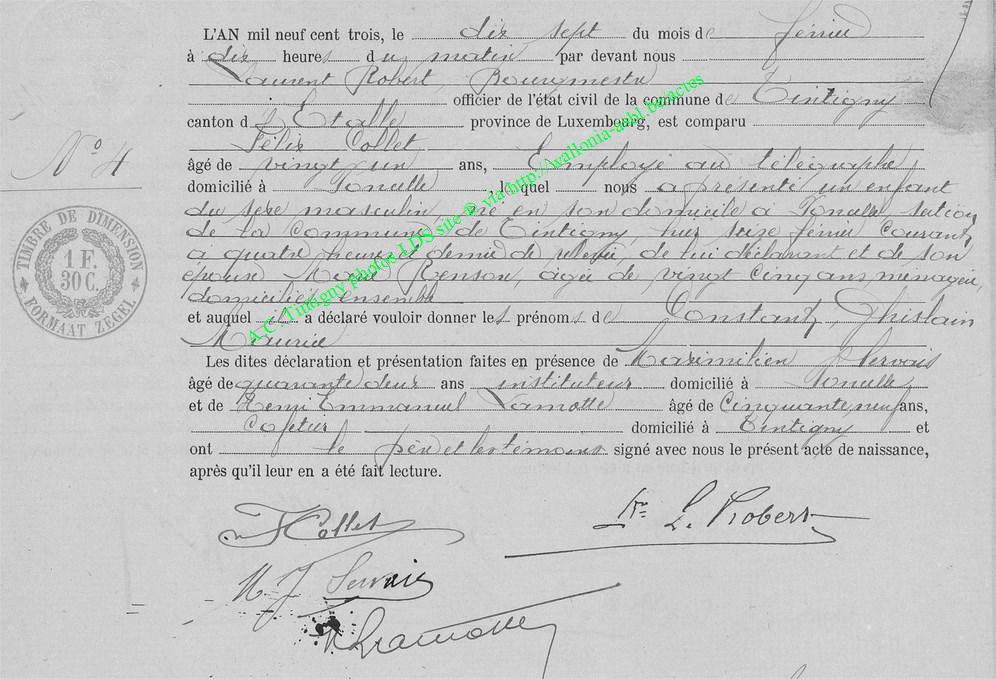 L'AN mil neuf cent trois, le dix sept du mois de février
à dix heures du matin par devant nous
Laurent Robert Bourgmestre
officier de l'état civil de la commune de Tintigny
canton d'Etalle province de Luxembourg, est comparu
Félix Collet
N° 4
âgé de vingt un ans, Employé au télégraphe
domicilié à lequel nous a présenté un enfant
du sexe masculin né en son domicile à section
de la Commune de Tintigny, hier seize février Courant,
à quatre heures et demie de relevée, de lui déclarant et de son
épouse Marie Renson, âgée de vingt cinq ans ménagère,
domiciliés ensemble
et auquel il a déclaré vouloir donner les prénoms de Constant, Ghislain
Maurice
Les dites déclaration et présentation faites en présence de Maximilien J Servais
âgé de quarante deux ans instituteur domicilié à
et de Henri Emmanuel Lamotte âgé de Cinquante neuf ans,
domicilié à Tintigny et
ont le père et les témoins signé avec nous le présent acte de naissance,
après qu'il leur en a été fait lecture.
TIMBRE DE DIMENSION
1 F.
30 C.
FORMAAT ZEGEL
A.C. Tintigny photos LDS site ® via http://wallonia-asbl.be/actes
F Collet
L. Robert
M J Servais
Lamotte